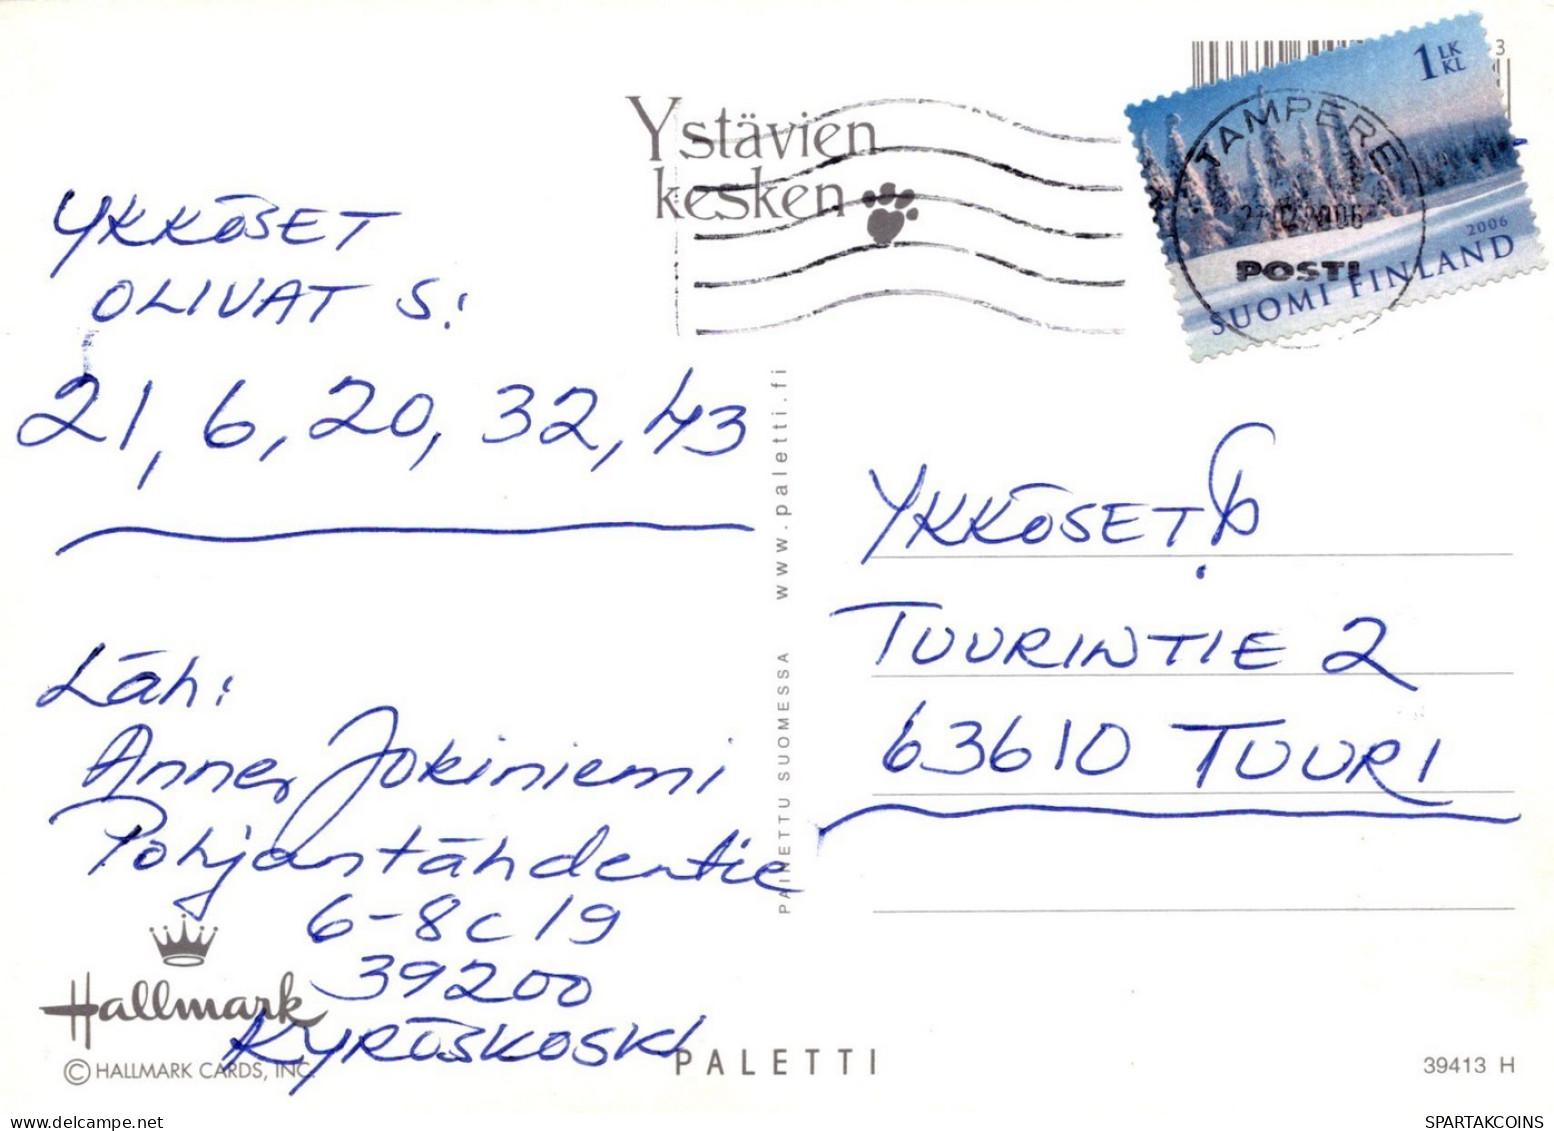 Ystävien
kesken
3
1 LK
KL
TAMPERE
2006
POSTI
2006
SUOMI FINLAND
YKKÖSET
OLIVAT S:
21, 6, 20, 32, 43
www.paletti.fi
PAINETTU SUOMESSA
YKKÖSET
TUURINTIE 2
63610 TUURI
Läh:
Anne Jokiniemi
Pohjantähdentie
6-8 C 19
39200
KYRÖSKOSKI
Hallmark
© HALLMARK CARDS, INC.
PALETTI
39413 H
SPARTAKCOINS